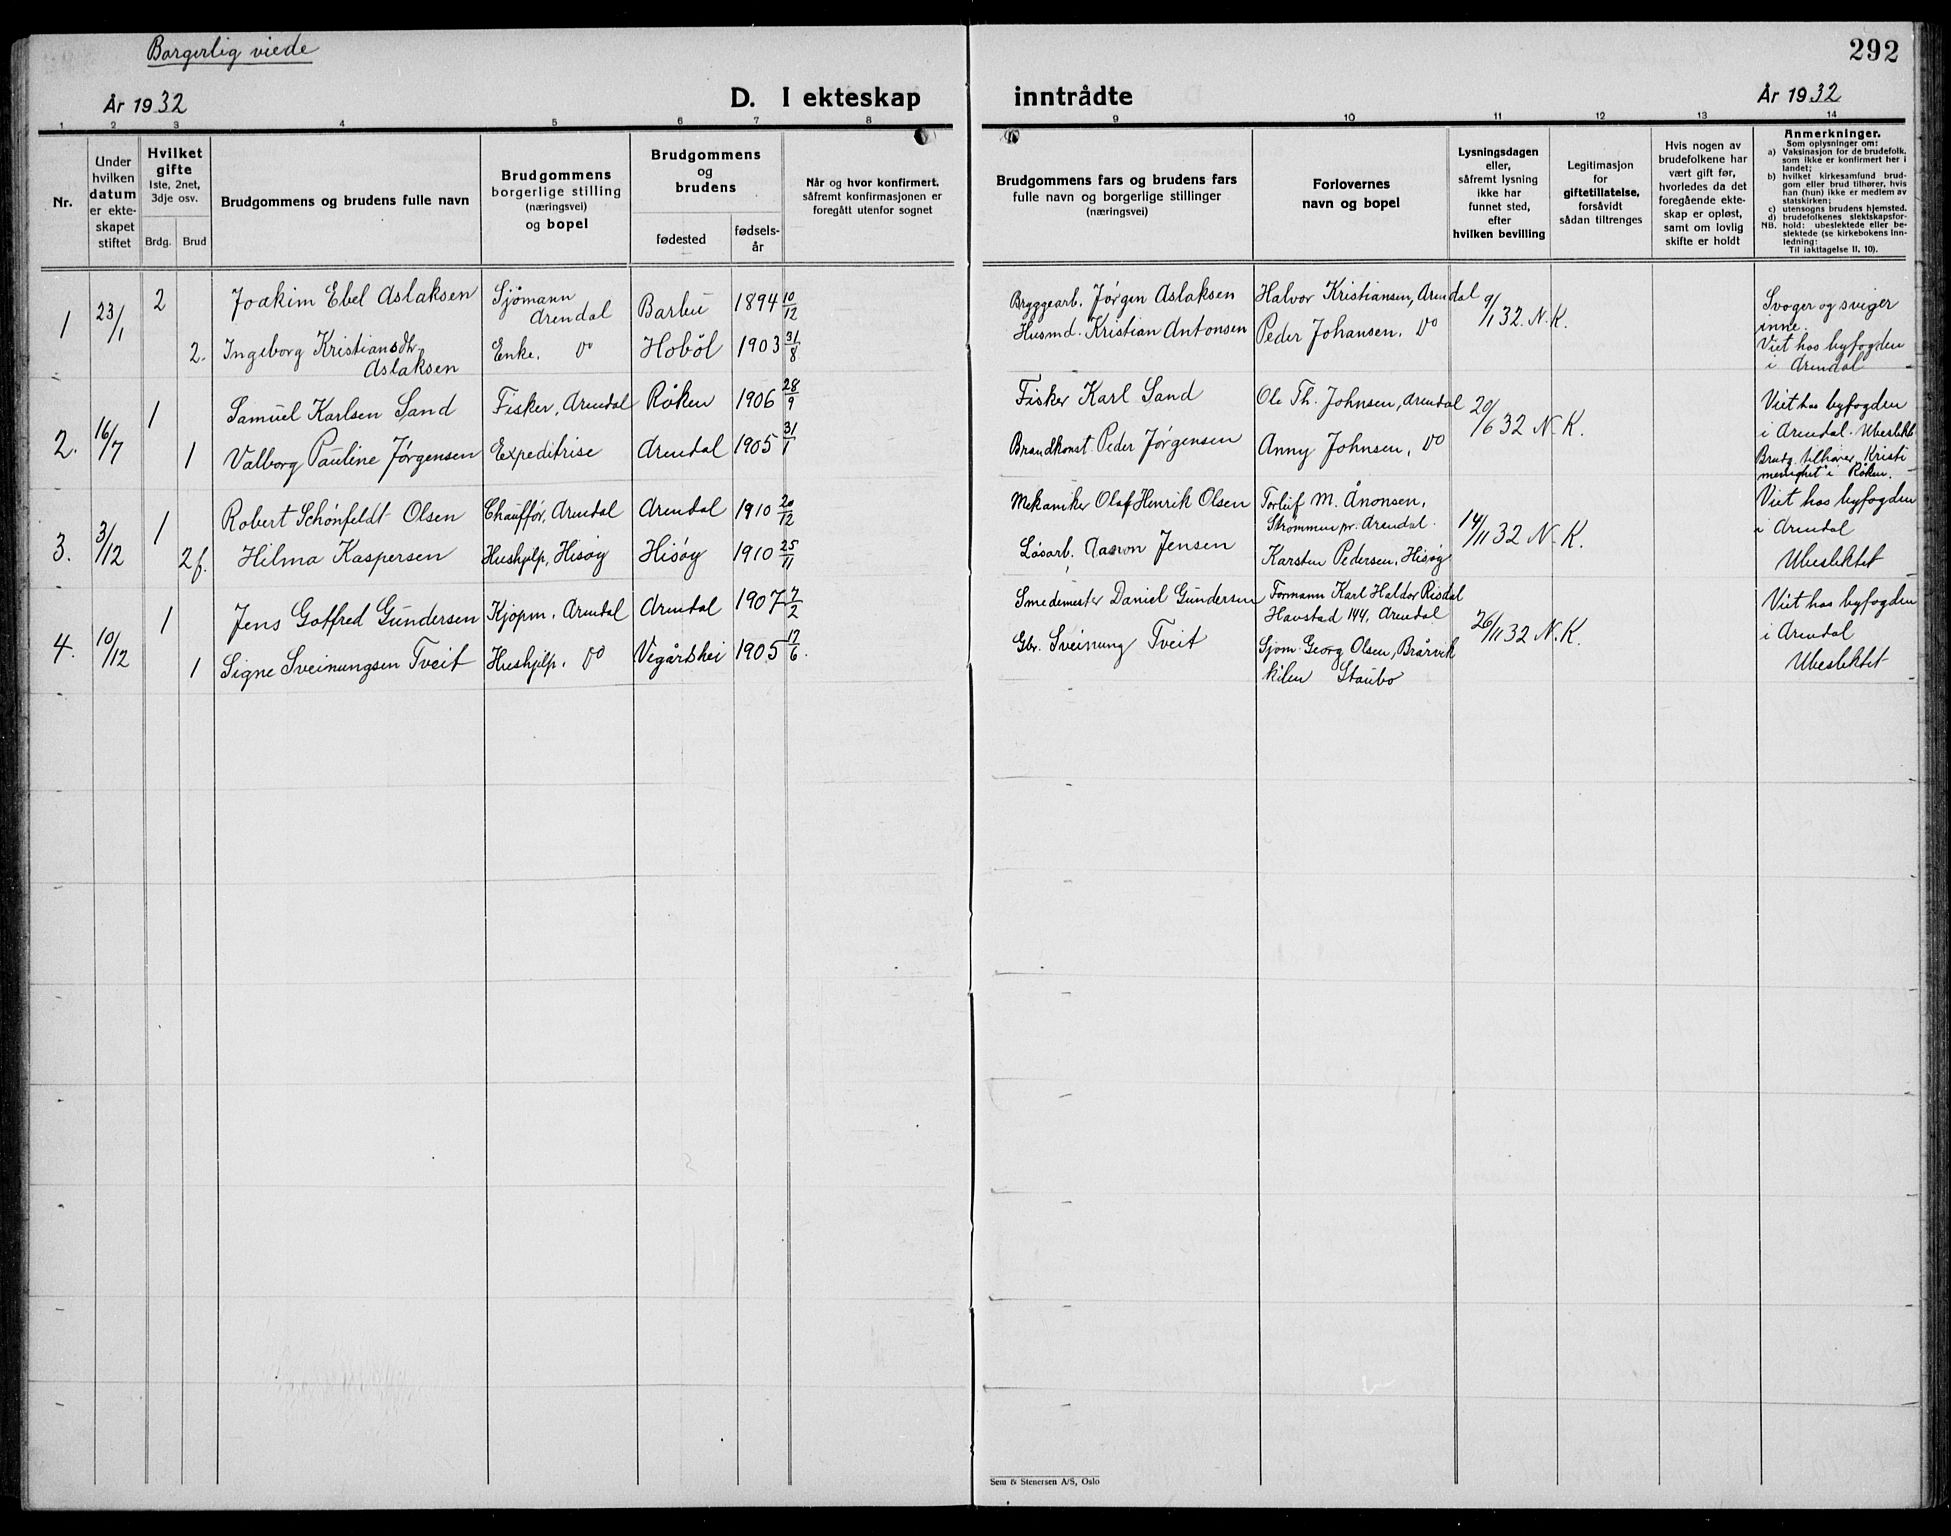 Borgerlig viede
292
År 1932
D. I ekteskap
inntrådte
År 1932
1 2 3 4 5 6 7 8 9 10 11 12 13 14
Nr.
Under
hvilken
datum
er ekte-
skapet
stiftet
Hvilket
gifte
1ste, 2net,
3dje osv.
Brdg. Brud
Brudgommens og brudens fulle navn
Brudgommens
borgerlige stilling
(næringsvei)
og bopel
Brudgommens
og
brudens
fødested
fødsels-
år
Når og hvor konfirmert,
såfremt konfirmasjonen er
foregått utenfor sognet
Brudgommens fars og brudens fars
fulle navn og borgerlige stillinger
(næringsvei)
Forlovernes
navn og bopel
Lysningsdagen
eller,
såfremt lysning
ikke har
funnet sted,
efter
hvilken bevilling
Legitimasjon
for
giftetillatelse,
forsåvidt
sådan tiltrenges
Hvis nogen av
brudefolkene har
vært gift før,
hvorledes da det
foregående ekte-
skap er opløst,
samt om lovlig
skifte er holdt
Anmerkninger.
Som oplysninger om:
a) Vaksinasjon for de brudefolk,
som ikke er konfirmert her i
landet;
b) hvilket kirkesamfund brud-
gom eller brud tilhører, hvis
han (hun) ikke er medlem av
statskirken;
c) utensogns brudens hjemsted.
d) brudefolkenes slektskapsfor-
NB. hold: ubeslektede eller be-
slektede (se kirkebokens inn-
ledning:
Til iakttagelse II. 10).
1 23/1 2 Joakim Ebel Aslaksen Sjømann Arendal Barbu 1894 10/12 Bryggearb. Jørgen Aslaksen Halvor Kristiansen, Arendal 9/1 32. N.K. Svoger og sviger
inne.
2. Ingeborg Kristiansdtr. Aslaksen Enke. Do Hobøl 1903 31/8 Husmd. Kristian Antonsen Peder Johansen. Do Viet hos byfogden
i Arendal
2. 16/7 1 Samuel Karlsen Sand Fisker, Arendal Røken 1906 28/9 Fisker Karl Sand Ole Th. Johnsen, Arendal 20/6 32 N.K. Viet hos byfogden
i Arendal. Ubeslekt
1 Valborg Pauline Jørgensen Expeditrise Arendal 1905 31/1 Brandkonst. Peder Jørgensen Anny Johnsen, Do Brudg. tilhører Kristi
menighet i Røken.
3. 3/12 1 Robert Schönfeldt Olsen Chauffør, Arendal Arendal 1910 20/12 Mekaniker Olaf Henrik Olsen Torleif M. Ånonsen,
Strømmen pr. Arendal. 14/11 32 N.K. Viet hos byfogden
i Arendal
2f. Hilma Kaspersen Hushjelp, Hisøy Hisøy 1910 25/11 Løsarb. Jensen Karsten Pedersen, Hisøy Ubeslektet
4. 10/12 1 Jens Gotfred Gundersen Kjøpm, Arendal Arendal 1907 7/2 Smedemester Daniel Gundersen Formann Karl Haldor Risdal
Havstad 144, Arendal 26/11 32 N.K. Viet hos byfogden
i Arendal
1 Signe Sveinungsen Tveit Hushjelp. Do Vegårdshei 1905 17/6. Gbr. Sveinung Tveit Sjøm. Georg Olsen, Brårvik
kilen Staubo Ubeslektet
Sem & Stenersen A/S, Oslo